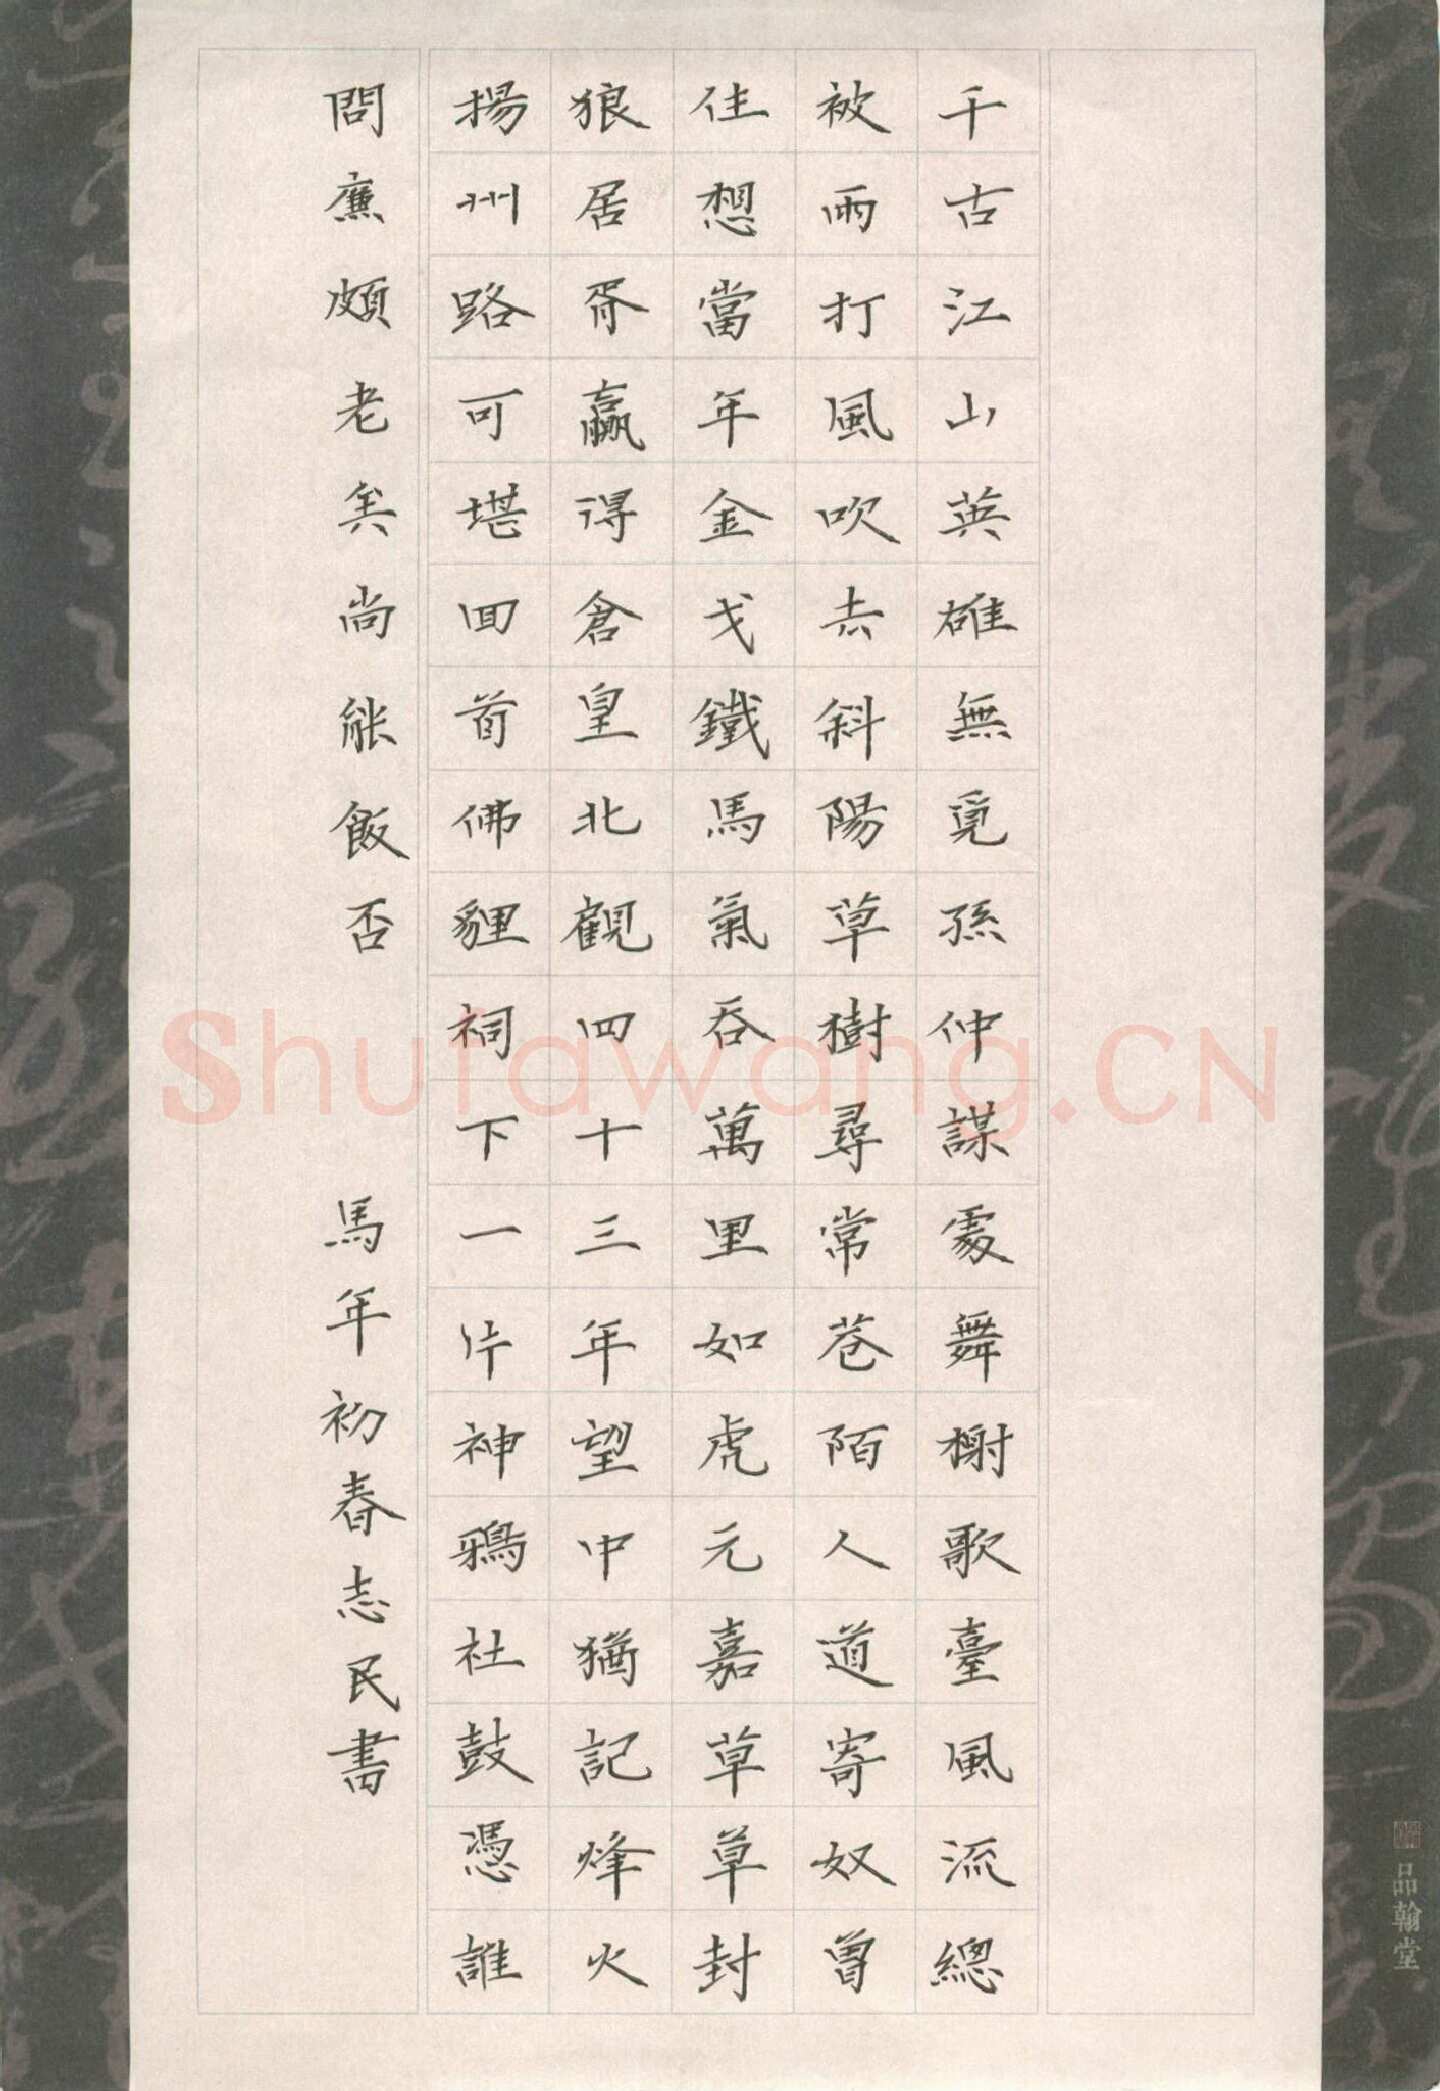 千古江山英雄無覓孫仲謀處舞榭歌臺風流總
被雨打風吹去斜陽草樹尋常巷陌人道寄奴曾
住想當年金戈鐵馬氣吞萬里如虎元嘉草草封
狼居胥贏得倉皇北顧四十三年望中猶記烽火
揚州路可堪囬首佛貍祠下一片神鴉社鼓憑誰
問廉頗老矣尚能飯否 馬年初春志民書
品翰堂
Shufawang.CN